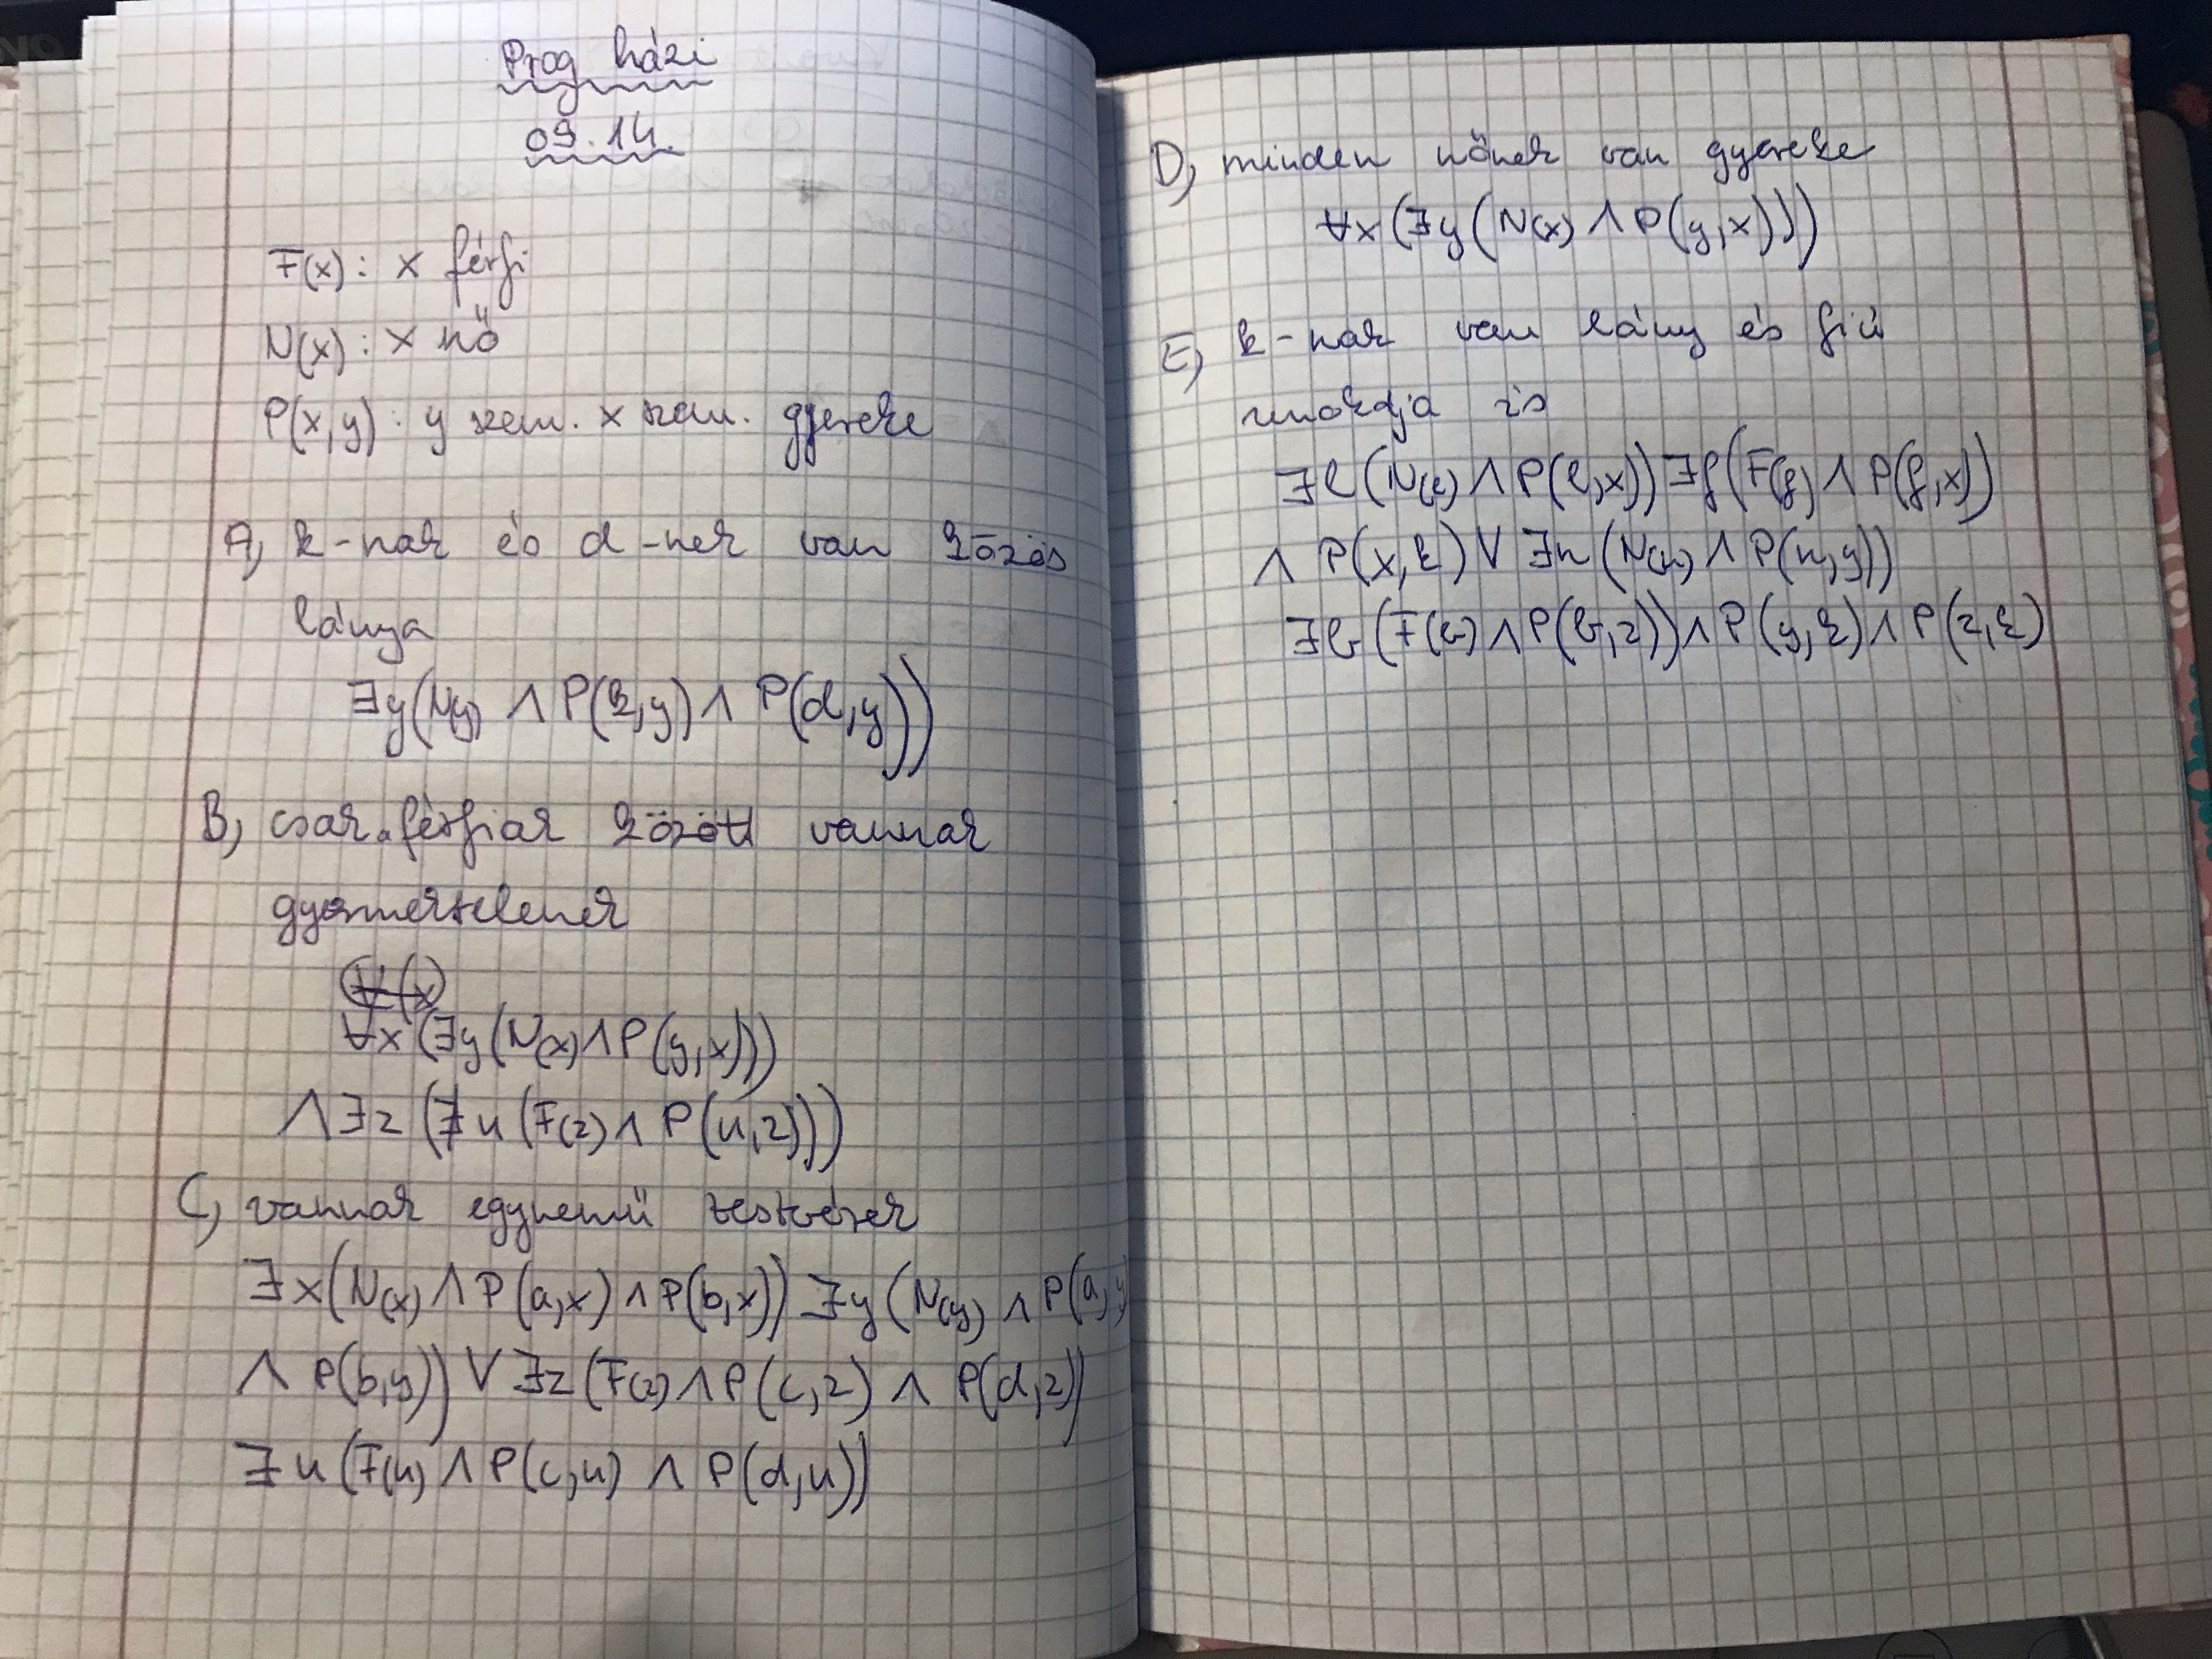 Prog házi
09.14.
F(x): x férfi
N(x): x nő
P(x,y): y szem. x szem. gyereke
A, k-nak és d-nek van közös
lánya
∃y(N(y) ∧ P(k,y) ∧ P(d,y))
B, csak a férfiak között vannak
gyermektelenek
∀x(∃y(N(x) ∧ P(y,x)))
∧ ∃z(∄u(F(z) ∧ P(u,z)))
C, vannak egynemű testvérek
∃x(N(x) ∧ P(a,x) ∧ P(b,x)) ∃y(N(y) ∧ P(a,y)
∧ P(b,y)) ∨ ∃z(F(z) ∧ P(c,z) ∧ P(d,z))
∃u(F(u) ∧ P(c,u) ∧ P(d,u))
D, minden nőnek van gyereke
∀x(∃y(N(x) ∧ P(y,x)))
E, k-nak van lány és fiú
unokája is
∃l(N(l) ∧ P(l,x)) ∃f(F(f) ∧ P(f,x))
∧ P(x,k) ∨ ∃n(N(n) ∧ P(n,y))
∃b(F(b) ∧ P(b,z)) ∧ P(y,k) ∧ P(z,k)